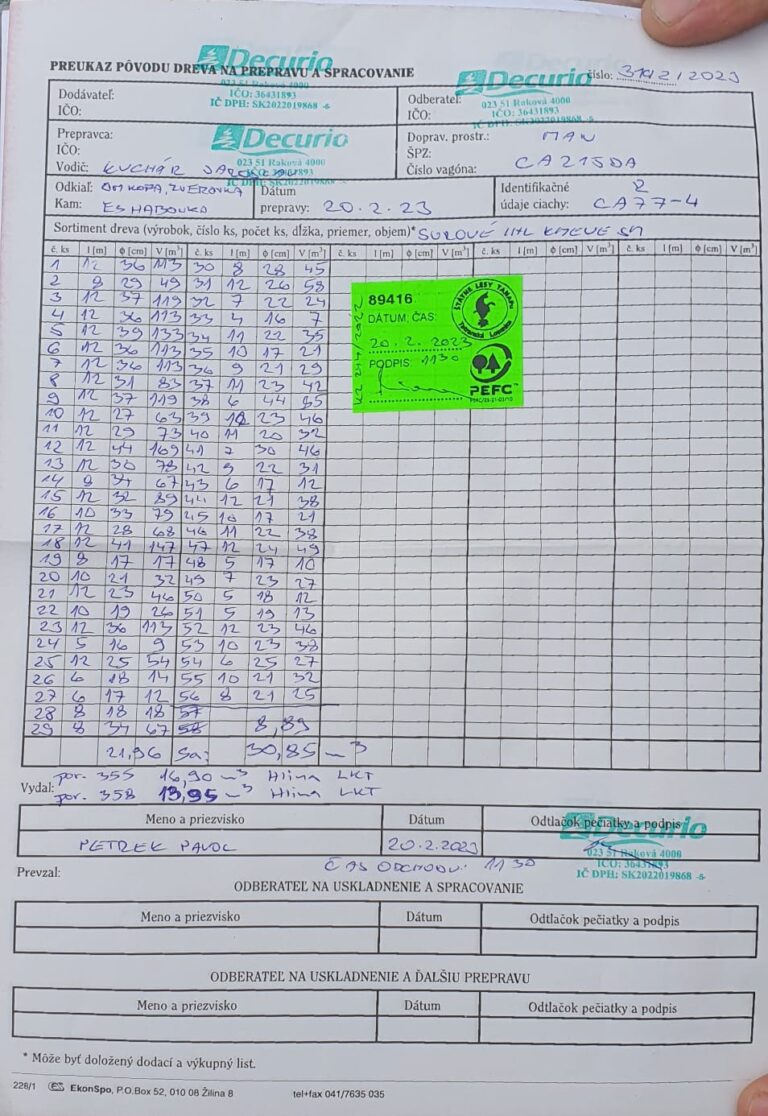 PREUKAZ PÔVODU DREVA NA PREPRAVU A SPRACOVANIE
číslo: 31a2/2023
Decurio
IČO: 36431893
IČ DPH: SK2022019868 -6-
Decurio
023 51 Raková 4000
IČO: 36431893
IČ DPH: SK2022019868 -6-
Dodávateľ:
IČO:
Odberateľ:
IČO:
Prepravca:
IČO:
Vodič: KUCHÁR
Decurio
023 51 Raková 4000
IČO: 36431893
IČ DPH: SK2022019868 -6-
Doprav. prostr.: MAN
ŠPZ:
Číslo vagóna: CA215DA
Odkiaľ: OM KOPA, ZVEROVKA
Kam: ES HABOVKA
Dátum
prepravy: 20.2.23
Identifikačné 2
údaje ciachy: CA77-4
Sortiment dreva (výrobok, číslo ks, počet ks, dĺžka, priemer, objem)* SUROVÉ IHL KMEVE SM
č. ks l [m] ϕ [cm] V [m³] č. ks l [m] ϕ [cm] V [m³] č. ks l [m] ϕ [cm] V [m³] č. ks l [m] ϕ [cm] V [m³] č. ks l [m] ϕ [cm] V [m³]
1 12 36 113 30 8 28 45
2 8 29 49 31 12 26 58
3 12 37 119 32 7 22 24
4 12 36 113 33 4 16 7
5 12 39 133 34 11 22 35
6 12 36 113 35 10 17 21
7 12 36 113 36 9 21 29
8 12 31 83 37 11 23 42
9 12 37 119 38 6 44 85
10 12 27 63 39 12 23 46
11 12 29 73 40 11 20 32
12 12 44 169 41 7 30 46
13 12 30 78 42 9 22 31
14 8 34 67 43 6 17 12
15 12 32 89 44 12 21 38
16 10 33 79 45 10 17 21
17 12 28 68 46 11 22 38
18 12 41 147 47 12 24 49
19 8 17 17 48 5 17 10
20 10 21 32 49 7 23 27
21 12 23 46 50 5 18 12
22 10 19 26 51 5 19 13
23 12 36 113 52 12 23 46
24 5 16 9 53 10 23 38
25 12 25 54 54 6 25 27
26 6 18 14 55 10 21 32
27 6 17 12 56 8 21 25
28 8 18 18 57
29 8 34 67 58 8,89
21,96 Sa: 30,85 m³
89416
DÁTUM, ČAS:
20.2.2023
PODPIS: 1130
ŠTÁTNE LESY TANAPu
Tatranská Lomnica
PEFC
Vydal:
por. 355 16,90 m³ Hlina LKT
por. 358 13,95 m³ Hlina LKT
Meno a priezvisko Dátum Odtlačok pečiatky a podpis
PETREK PAVOL 20.2.2023
Decurio
023 51 Raková 4000
IČO: 36431893
IČ DPH: SK2022019868 -6-
Prevzal:
ČAS ODCHODU: 1130
ODBERATEĽ NA USKLADNENIE A SPRACOVANIE
Meno a priezvisko Dátum Odtlačok pečiatky a podpis
ODBERATEĽ NA USKLADNENIE A ĎALŠIU PREPRAVU
Meno a priezvisko Dátum Odtlačok pečiatky a podpis
* Môže byť doložený dodací a výkupný list.
228/1 EkonSpo, P.O.Box 52, 010 08 Žilina 8 tel+fax 041/7635 035